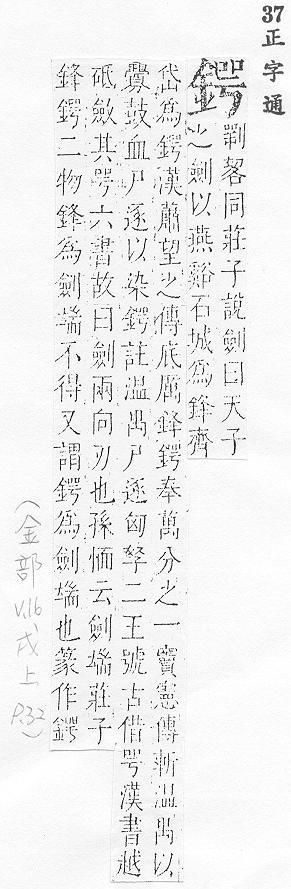 37正字通
鍔
同莊子說劍曰天子
之劍以燕谿石城爲鋒齊
岱爲鍔漢蕭望之傳底厲鋒鍔奉萬分之一竇憲傳斬温禺以
釁鼓血尸逐以染鍔註温禺尸逐匈孥二王號古借咢漢書越
砥斂其咢六書故曰劍兩向刃也孫愐云劍端莊子
鋒鍔二物鋒爲劍端不得又謂鍔爲劍端也篆作鍔
(金部 V.16 戌上 P.32)